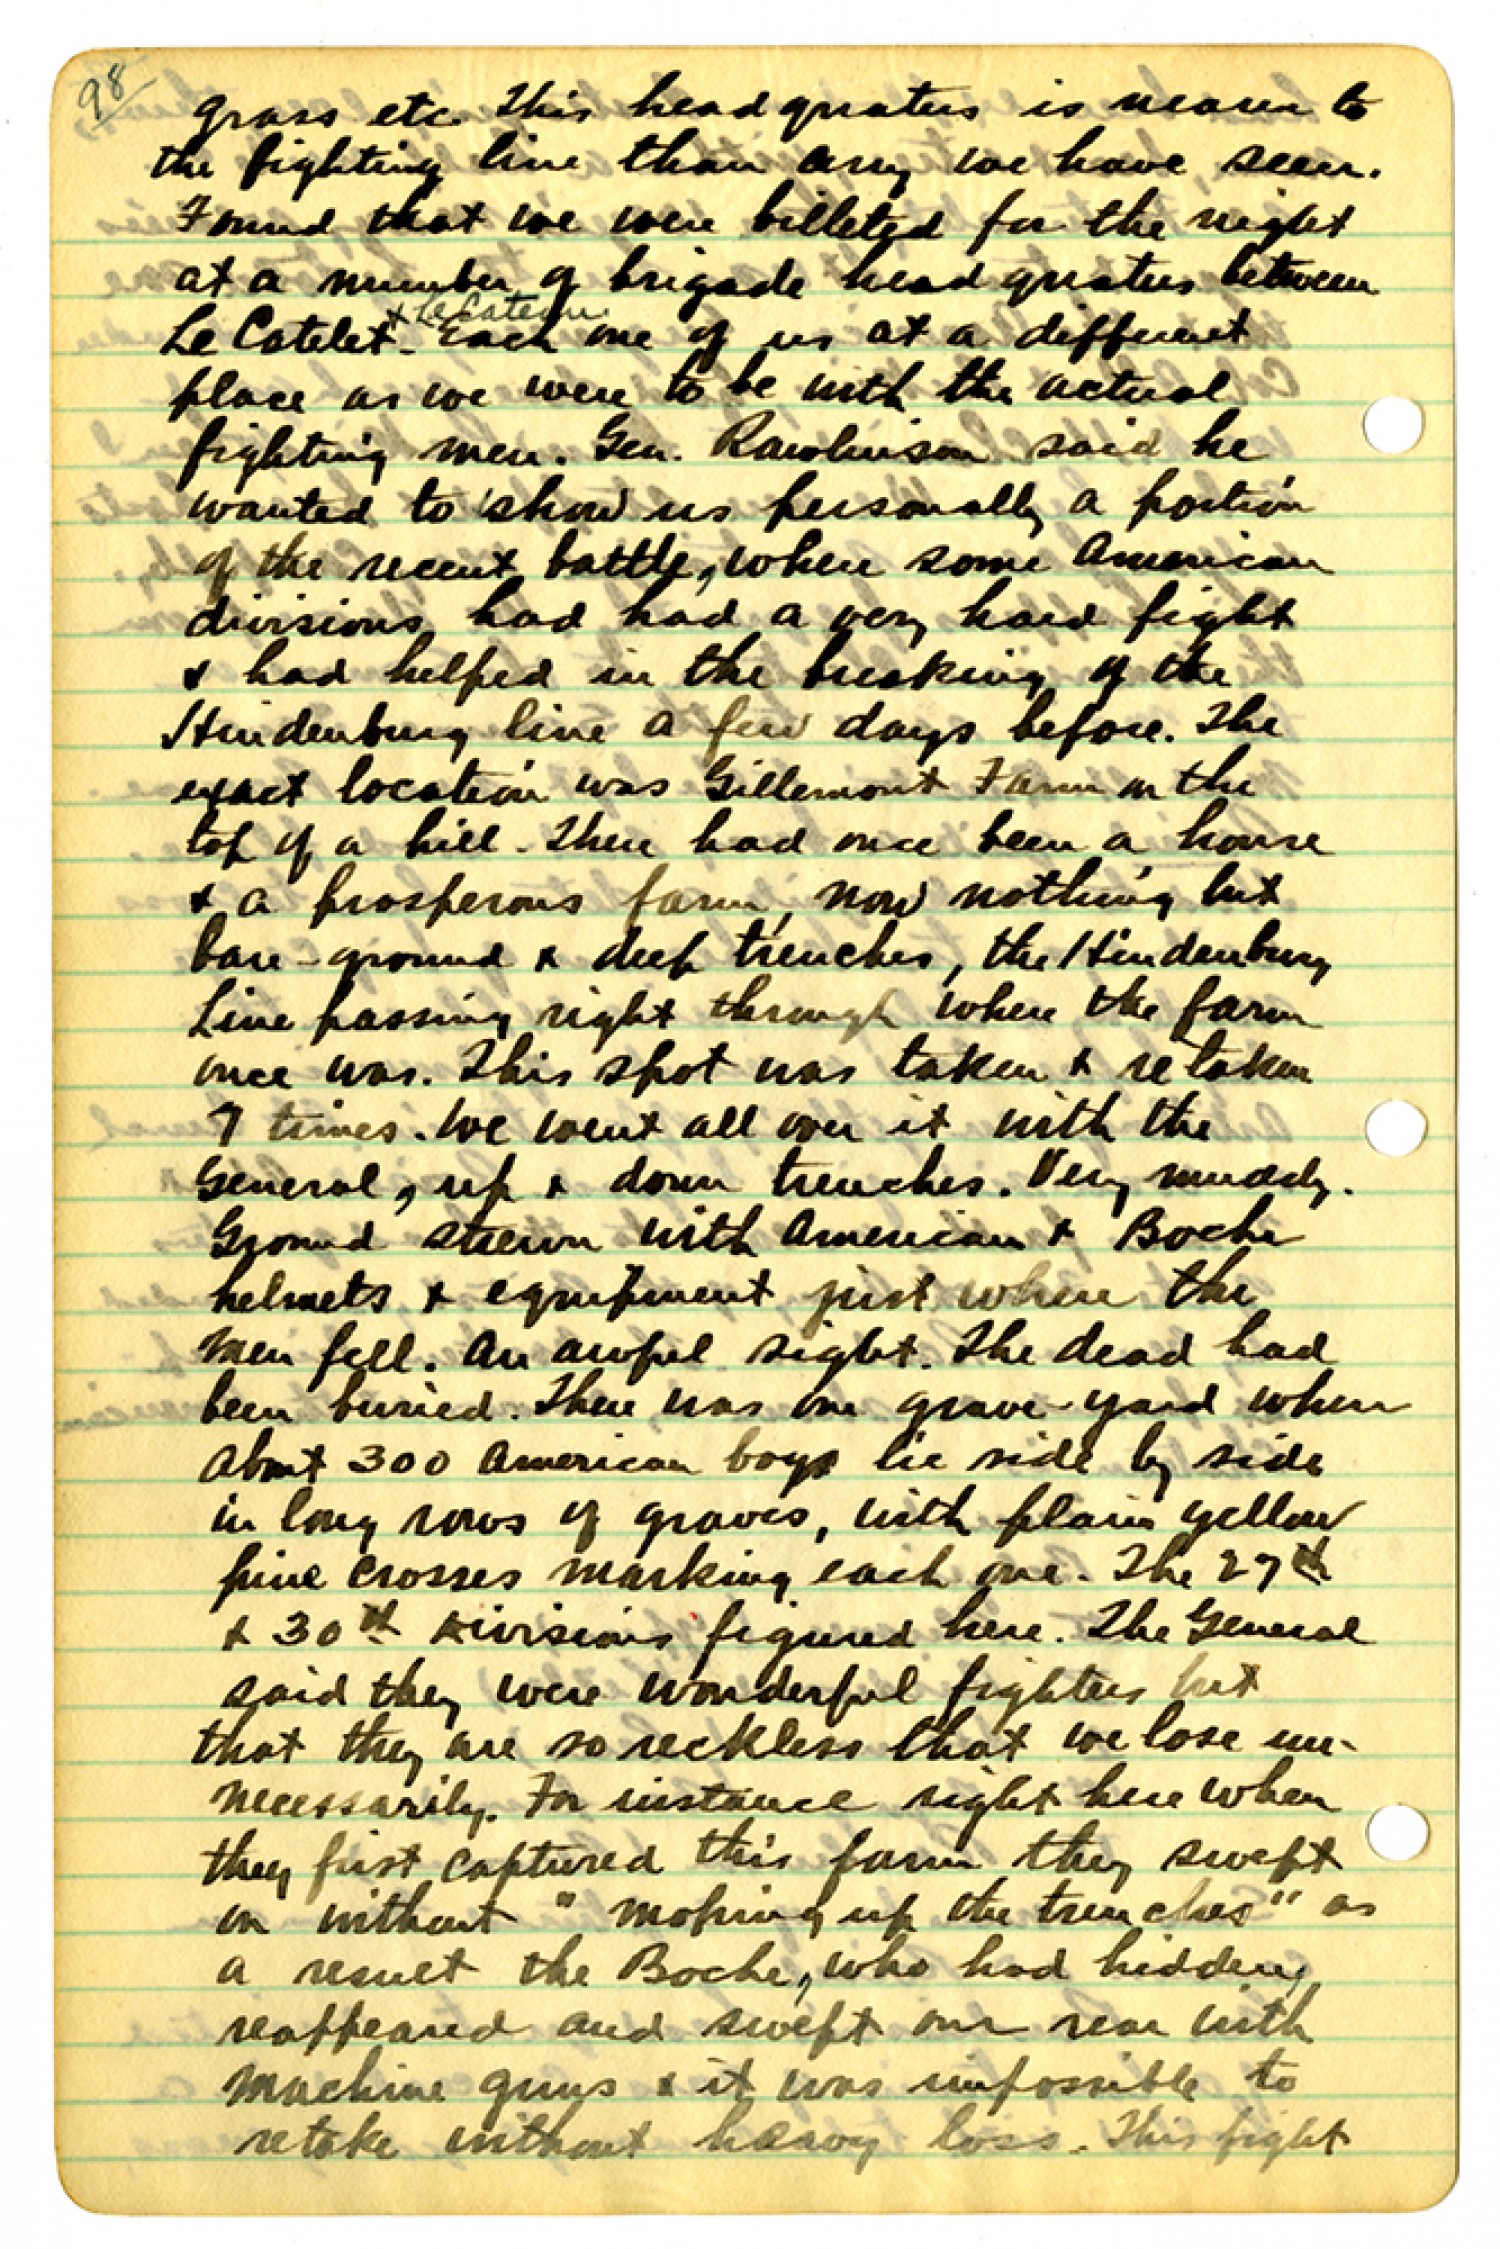 98
grass etc. This head quaters is nearer to
the fighting line than any we have seen.
Found that we were billeted for the night
at a number of brigade head quaters between
& Le Cateau
Le Catelet. Each one of us at a different
place as we were to be with the actual
fighting men. Gen. Rawlinson said he
wanted to show us personally a portion
of the recent battle, where some American
divisions had had a very hard fight
& had helped in the breaking of the
Hindenburg line a few days before. The
exact location was Gillemont Farm on the
top of a hill. There had once been a house
& a prosperous farm, now nothing but
bare-ground & deep trenches, the Hindenburg
Line passing right through where the farm
once was. This spot was taken & retaken
7 times. We went all over it with the
General, up & down trenches. Very muddy.
Ground strewn with American & Boche
helmets & equipment just where the
men fell. An awful sight. The dead had
been buried. There was one grave-yard where
about 300 American boys lie side by side
in long rows of graves, with plain yellow
pine crosses marking each one. The 27th
& 30th Divisions figured here. The General
said they were wonderful fighters but
that they are so reckless that we lose un-
necessarily. For instance right here when
they first captured this farm they swept
on without "moping up the trenches" as
a result the Boche, who had hidden,
reappeared and swept our rear with
machine guns & it was impossible to
retake without heavy loss. This fight